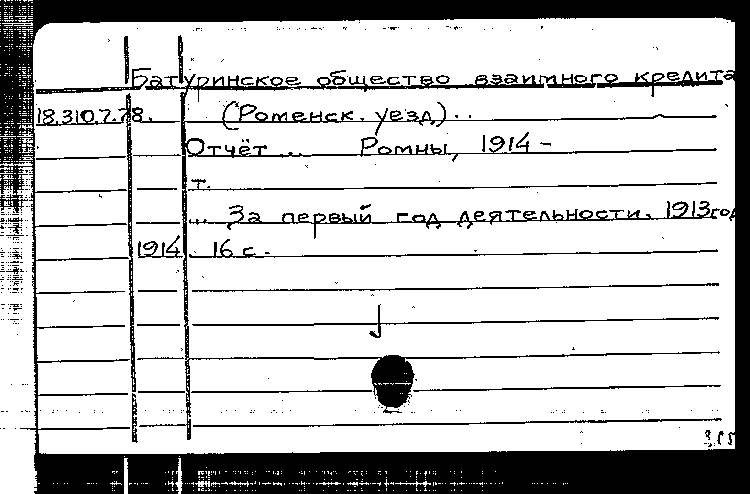 Батуринское общество взаимного кредита
18.310.7.78. (Роменск. уезд)..
Отчёт ... Ромны, 1914 -
т.
... За первый год деятельности. 1913год
1914. 16 с.